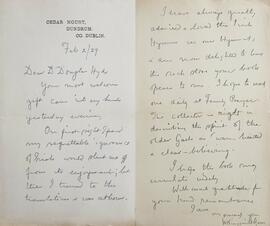 CEDAR MOUNT,
DUNDRUM,
CO. DUBLIN.
Feb 2/29
Dear Dr Douglas Hyde
Your most welcome
gift came into my hands
yesterday evening.
On first sight I fear
my regrettable ignorance
of Irish would shut me off
from its enjoyment; but
then I turned to the
translations & was
I have always greatly
admired & loved the Irish
Hymns in our Hymnal,
& am now delighted to have
the rich store your book
opens to me. I hope to read
one daily at Family Prayer.
The collector is right in
describing the spirit of the
older Gaels as
I hope the book may
circulate widely.
With much gratitude for
your kind remembrance
I am